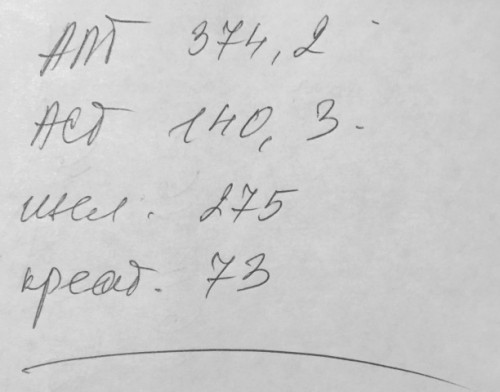 АЛТ 374,2
АСТ 140,3.
щел. 275
креат. 73